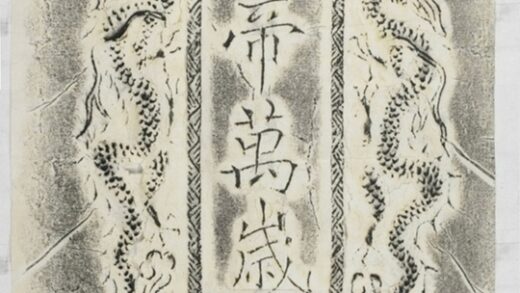 帝萬歲